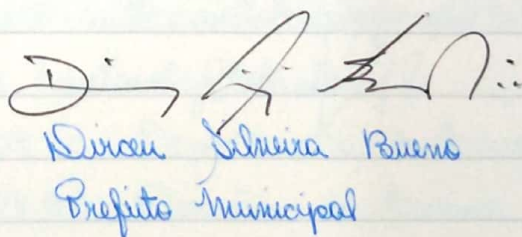 Dirceu Silveira Bueno
Prefeito Municipal